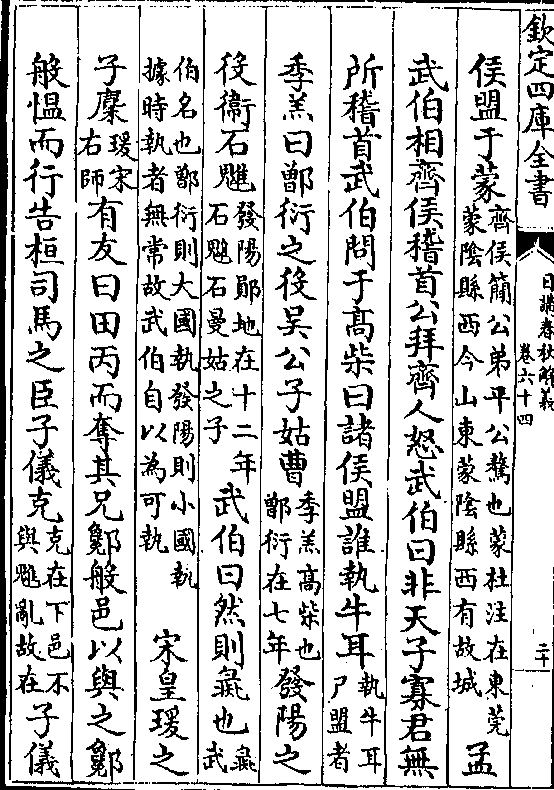 欽定四庫全書
日講春秋解義
卷六十四
二十
侯盟于蒙齊侯簡公弟平公驁也蒙杜注在東莞蒙陰縣西今山東蒙陰縣西有故城孟
武伯相齊侯稽首公拜齊人怒武伯曰非天子寡君無
所稽首武伯問于高柴曰諸侯盟誰執牛耳執牛耳尸盟者
季羔曰鄫衍之役吳公子姑曹季羔高柴也鄫衍在七年發陽之
役衛石魋發陽鄖地在十二年石魋石曼姑之子武伯曰然則彘也彘武
伯名也鄫衍則大國執發陽則小國執據時執者無常故武伯自以為可執宋皇瑗之
子麇瑗宋右師有友曰田丙而奪其兄酁般邑以與之酁
般愠而行告桓司馬之臣子儀克克在下邑不與魋亂故在子儀